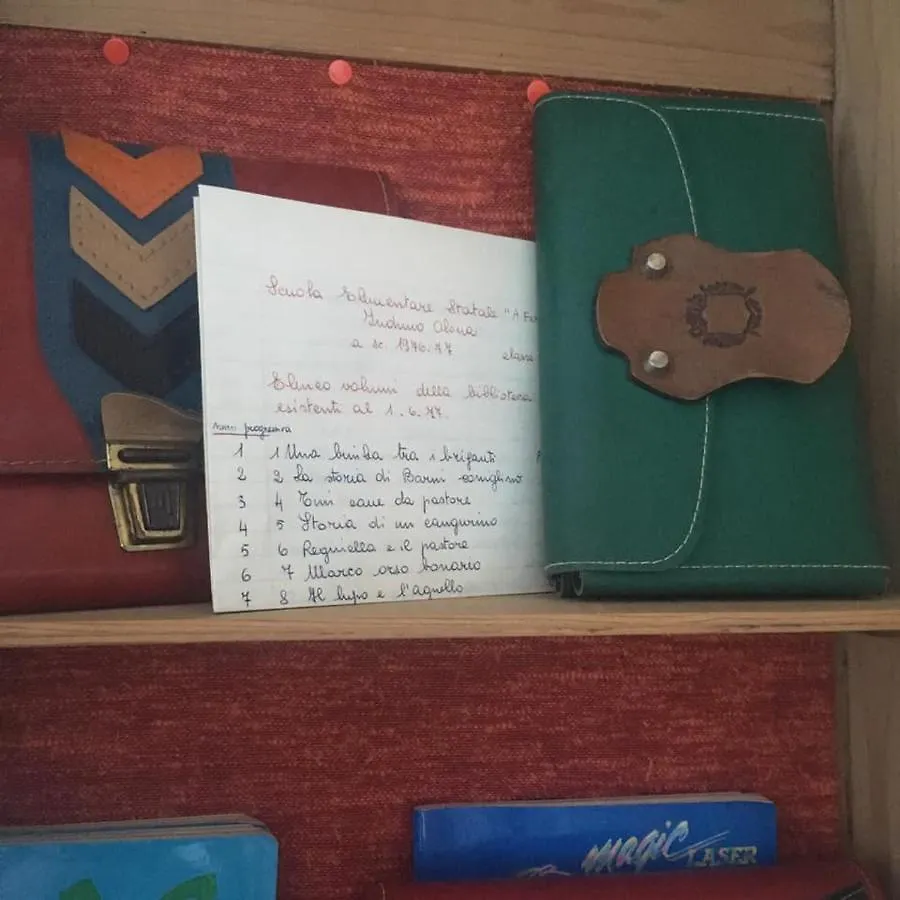 Scuola Elementare Statale "A
Induno Olona
a sc. 1976-77 classe
Elenco volumi della biblioteca
esistenti al 1.6.77.
progressivo
1 1 Una bimba tra i briganti
2 2 La storia di Barni coniglino
3 4 Toni cane da pastore
4 5 Storia di un cangurino
5 6 Reginella e il pastore
6 7 Marco orso bonario
7 8 Il lupo e l'agnello
magic LASER